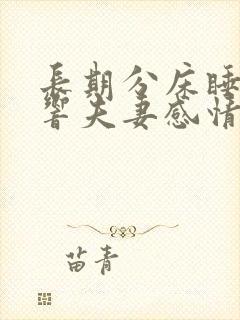 長期分床睡
響夫妻感情
苗青